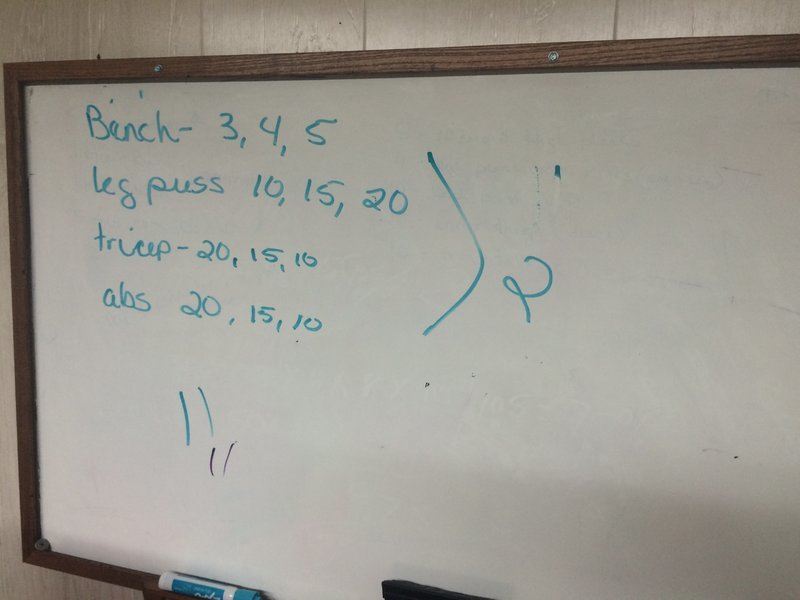 Bench- 3, 4, 5
leg puss 10, 15, 20
tricep- 20, 15, 10
abs 20, 15, 10
2